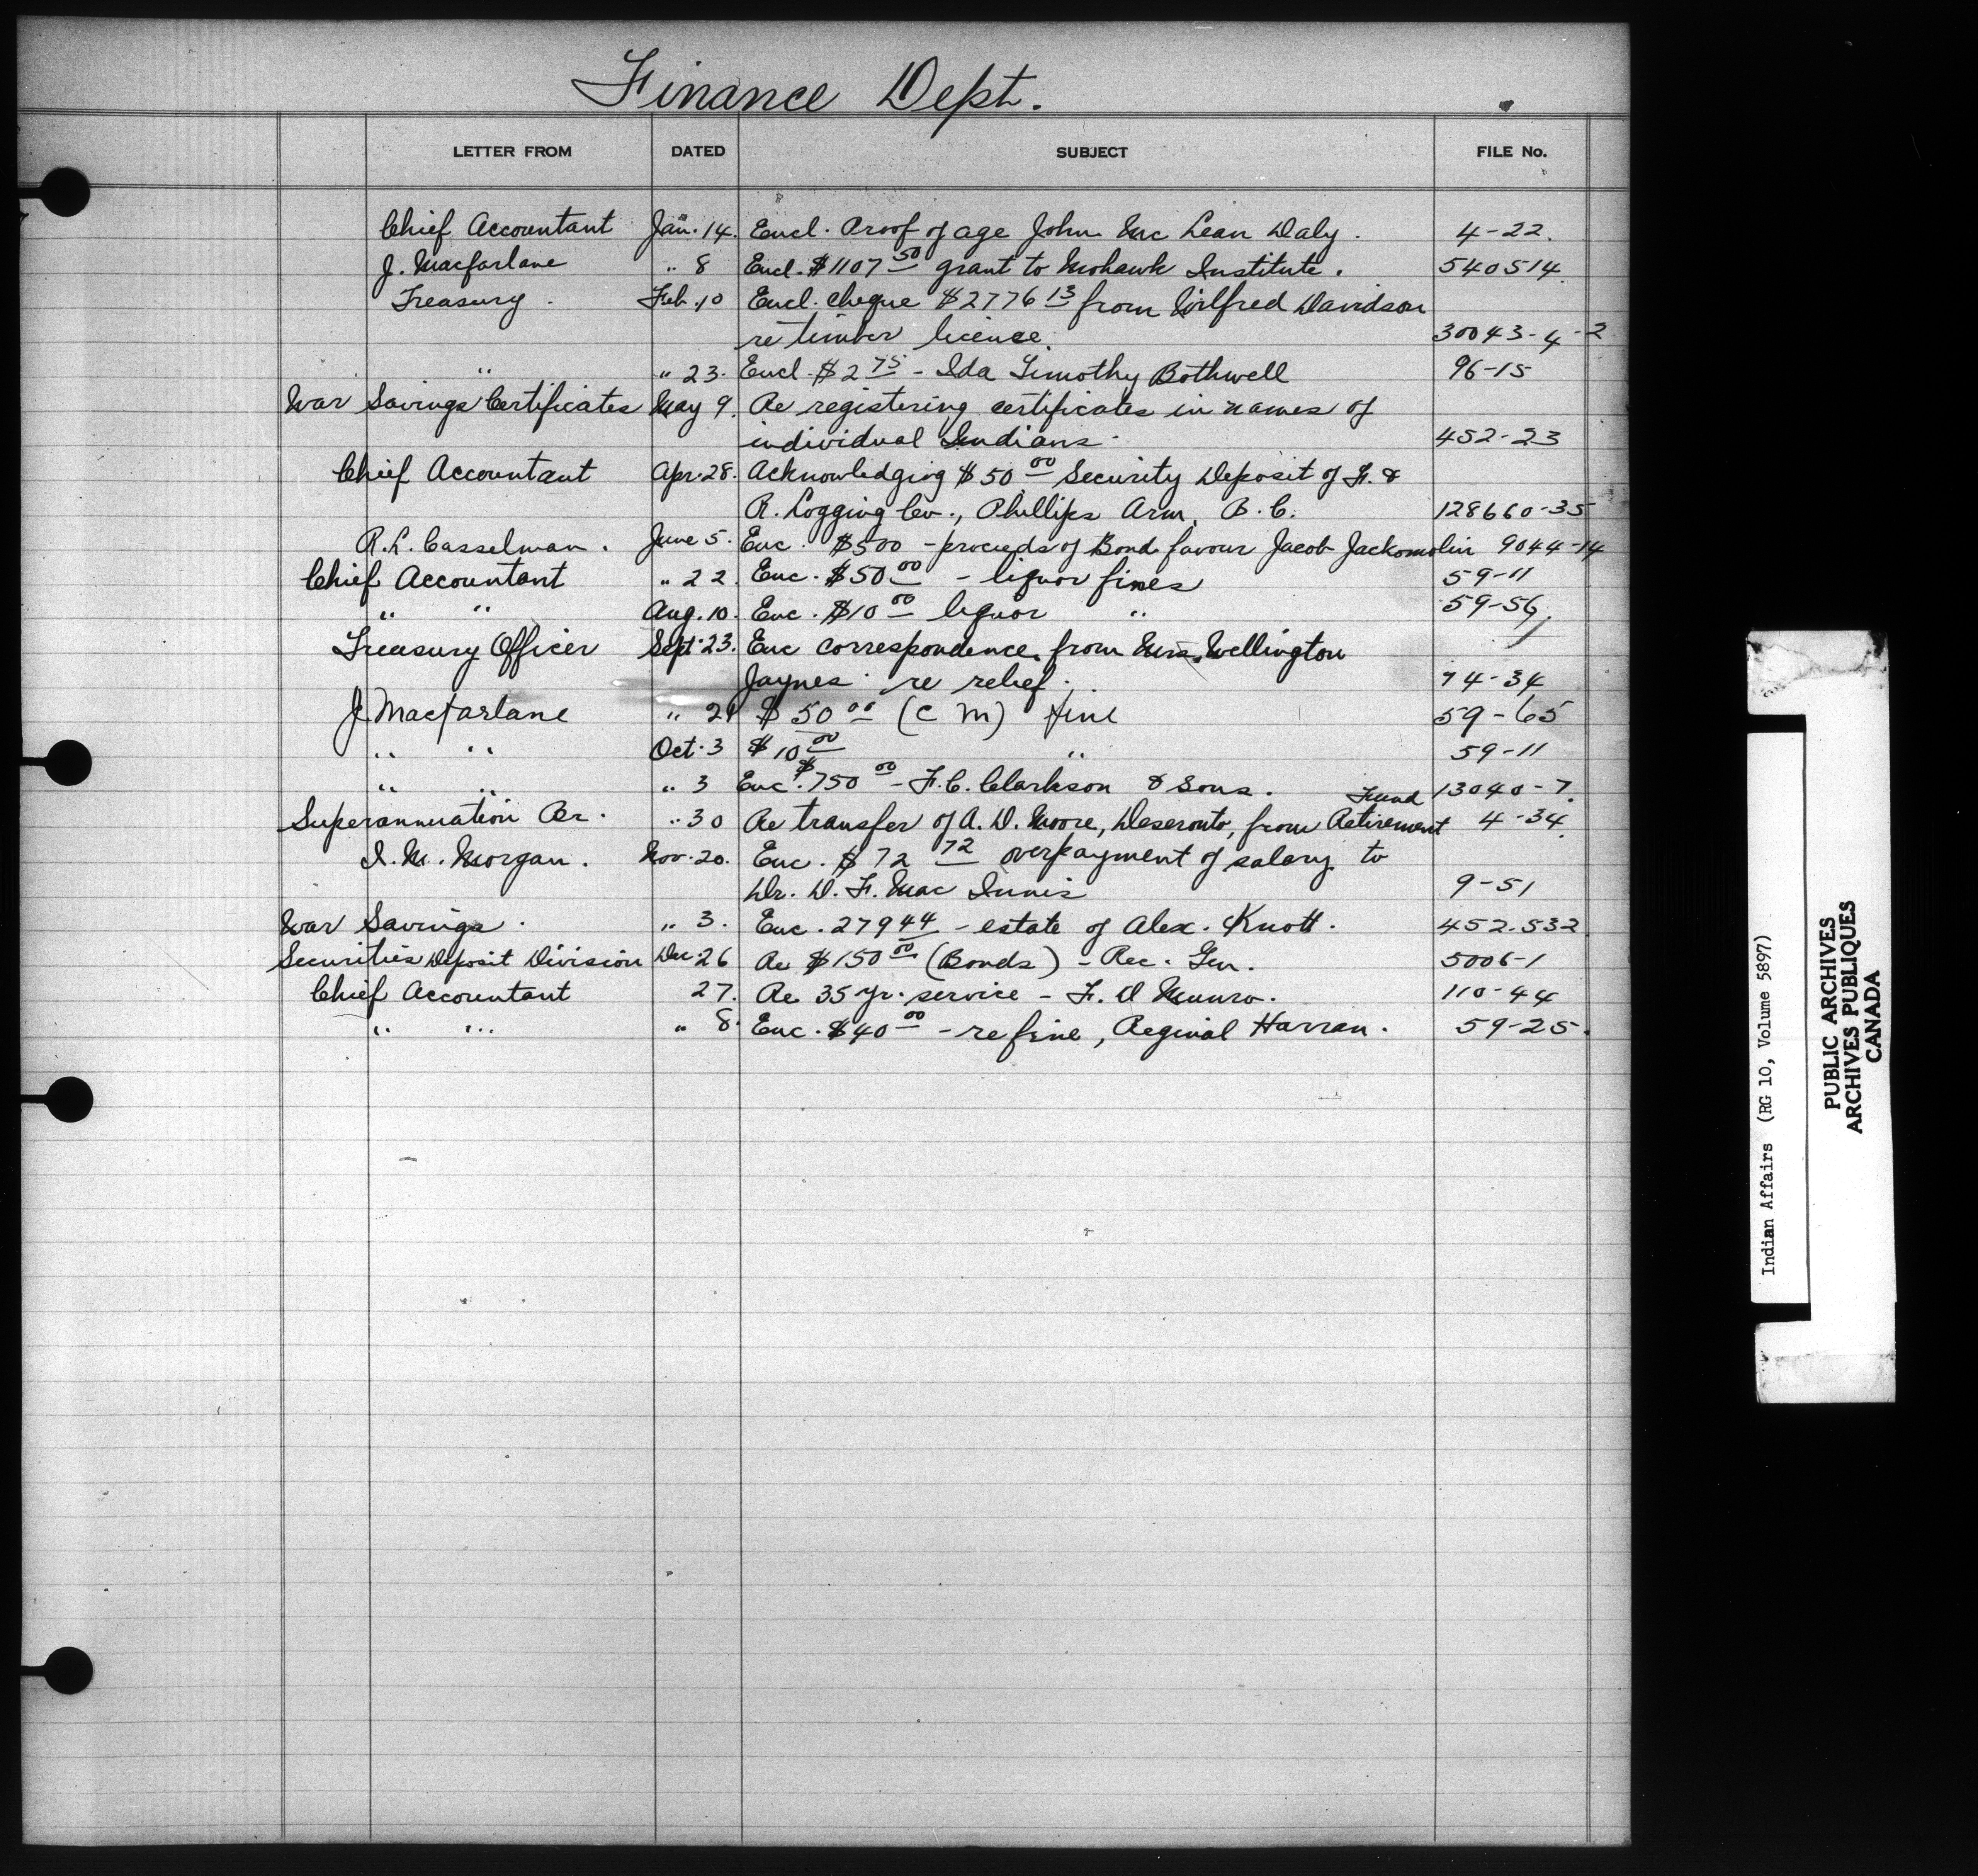 Finance Dept.
LETTER FROM DATED SUBJECT FILE No.
Chief Accountant Jan. 14. Encl. Proof of age John Mc Lean Daly. 4-22.
J. Macfarlane " 8 Encl. $1107 50 grant to Mohawk Institute. 540514
Treasury. Feb. 10 Encl. cheque $2776 13 from Wilfred Davidson
re timber license. 30043-4-2
" " 23. Encl. $2 75 - Ida Timothy Bothwell 96-15
War Savings Certificates May 9. Re registering certificates in names of
individual Indians. 452-23
Chief Accountant Apr. 28. Acknowledging $50 00 Security Deposit of F. &
R. Logging Co., Phillips Arm, B.C. 128660-35
R.L. Casselman. June 5. Enc. $500 - proceeds of Bond favour Jacob Jackomolin 9044-14
Chief Accountant " 22. Enc. $50 00 - liquor fines 59-11
" " Aug. 10. Enc. $10 00 liquor " 59-56.
Treasury Officer Sept. 23. Enc correspondence from Mrs. Wellington
Jaynes re relief. 74-34
J. Macfarlane " 29 $50 00 (C M) fine 59-65
" " Oct. 3 $10 00 " 59-11
" " " 3 Enc. $750 00 - F.C. Clarkson & Sons. 13040-7.
Superannuation Br. " 30 Re transfer of A. D. Moore, Deseronto, from Retirement Fund 4-34.
I. M. Morgan. Nov. 20. Enc. $72 72 overpayment of salary to
Dr. D. F. Mac Innis 9-51
War Savings. " 3. Enc. 279 44 - estate of Alex. Knott. 452-532
Securities Deposit Division Dec. 26 Re $150 00 (Bonds) - Rec. Gen. 5006-1
Chief Accountant 27. Re 35 yr. service - F. D Munro. 110-44
" " " 8. Enc. $40 00 - re fine, Reginal Harran. 59-25.
Indian Affairs (RG 10, Volume 5897)
PUBLIC ARCHIVES
ARCHIVES PUBLIQUES
CANADA